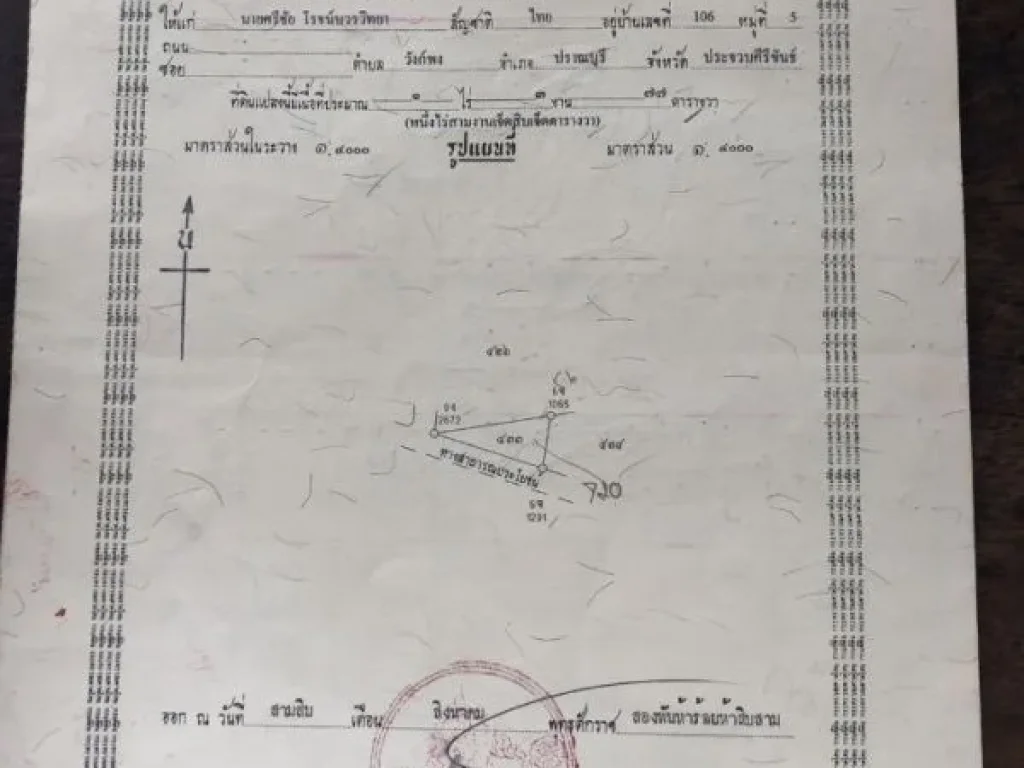 ให้แก่ นายศรีชัย โรจน์บวรวิทยา สัญชาติ ไทย อยู่บ้านเลขที่ 106 หมู่ที่ 5
ถนน
ซอย ตำบล วังก์พง อำเภอ ปราณบุรี จังหวัด ประจวบคีรีขันธ์
ที่ดินแปลงนี้มีเนื้อที่ประมาณ ๑ ไร่ ๓ งาน ๗๗ ตารางวา
(หนึ่งไร่สามงานเจ็ดสิบเจ็ดตารางวา)
มาตราส่วนในระวาง ๑:๔๐๐๐ รูปแผนที่ มาตราส่วน ๑:๔๐๐๐
น
๔๒๖
จจ
1065
จจ
2672
๔๓๓
๔๓๔
ทางสาธารณประโยชน์
จจ
1231
ออก ณ วันที่ สามสิบ เดือน สิงหาคม พุทธศักราช สองพันห้าร้อยห้าสิบสาม